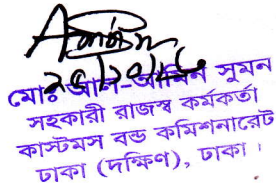 মোঃ আল-আমিন সুমন
সহকারী রাজস্ব কর্মকর্তা
কাস্টমস বন্ড কমিশনারেট
ঢাকা (দক্ষিণ), ঢাকা।